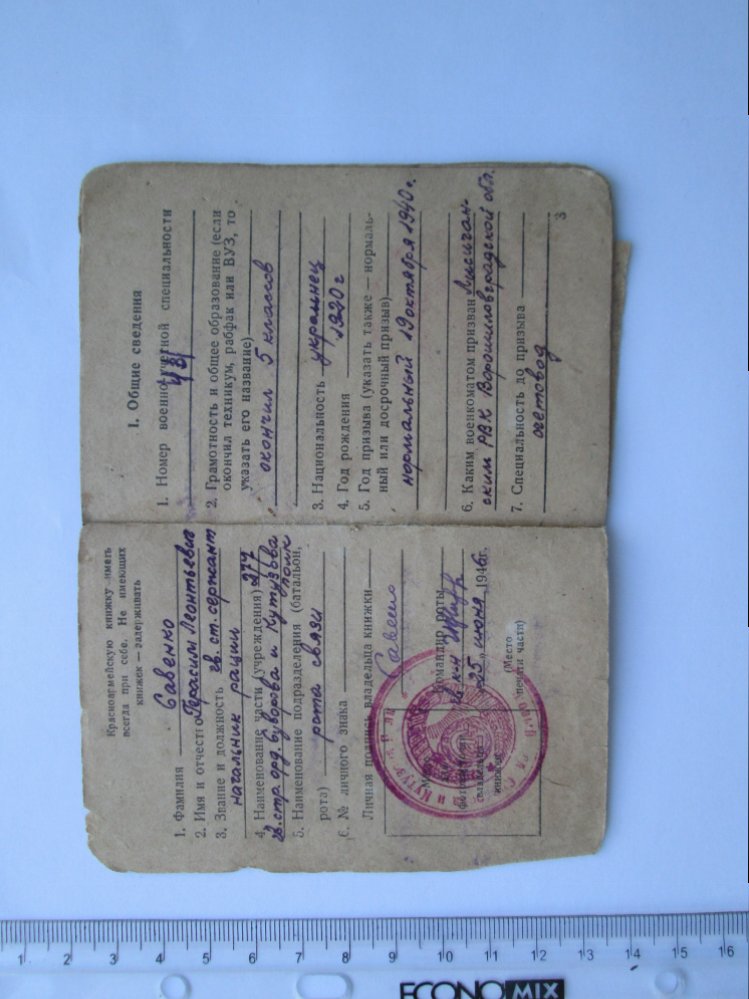 Красноармейскую книжку иметь
всегда при себе. Не имеющих
книжек — задерживать
1. Фамилия Савенко
2. Имя и отчество Герасим Леонтьевич
3. Звание и должность гв. ст. сержант
начальник рации
4. Наименование части (учреждения) 277
гв. стр. орд. Суворова и Кутузова полк
5. Наименование подразделения (батальон,
рота) рота связи
6. № личного знака
Личная подпись владельца книжки
Савенко
Командир роты
гв к-н
"25" июня 1946г.
(Место
печати части)
I. Общие сведения
1. Номер военно-учетной специальности
48
2. Грамотность и общее образование (если
окончил техникум, рабфак или ВУЗ, то
указать его название)
окончил 5 классов
3. Национальность украинец
4. Год рождения 1920 г
5. Год призыва (указать также — нормаль-
ный или досрочный призыв)
нормальный 19 октября 1940 г.
6. Каким военкоматом призван Лисичан-
ским РВК Ворошиловградской обл.
7. Специальность до призыва
счетовод
3
1 2 3 4 5 6 7 8 9 10 11 12 13 14 15 16
ECONOMIX